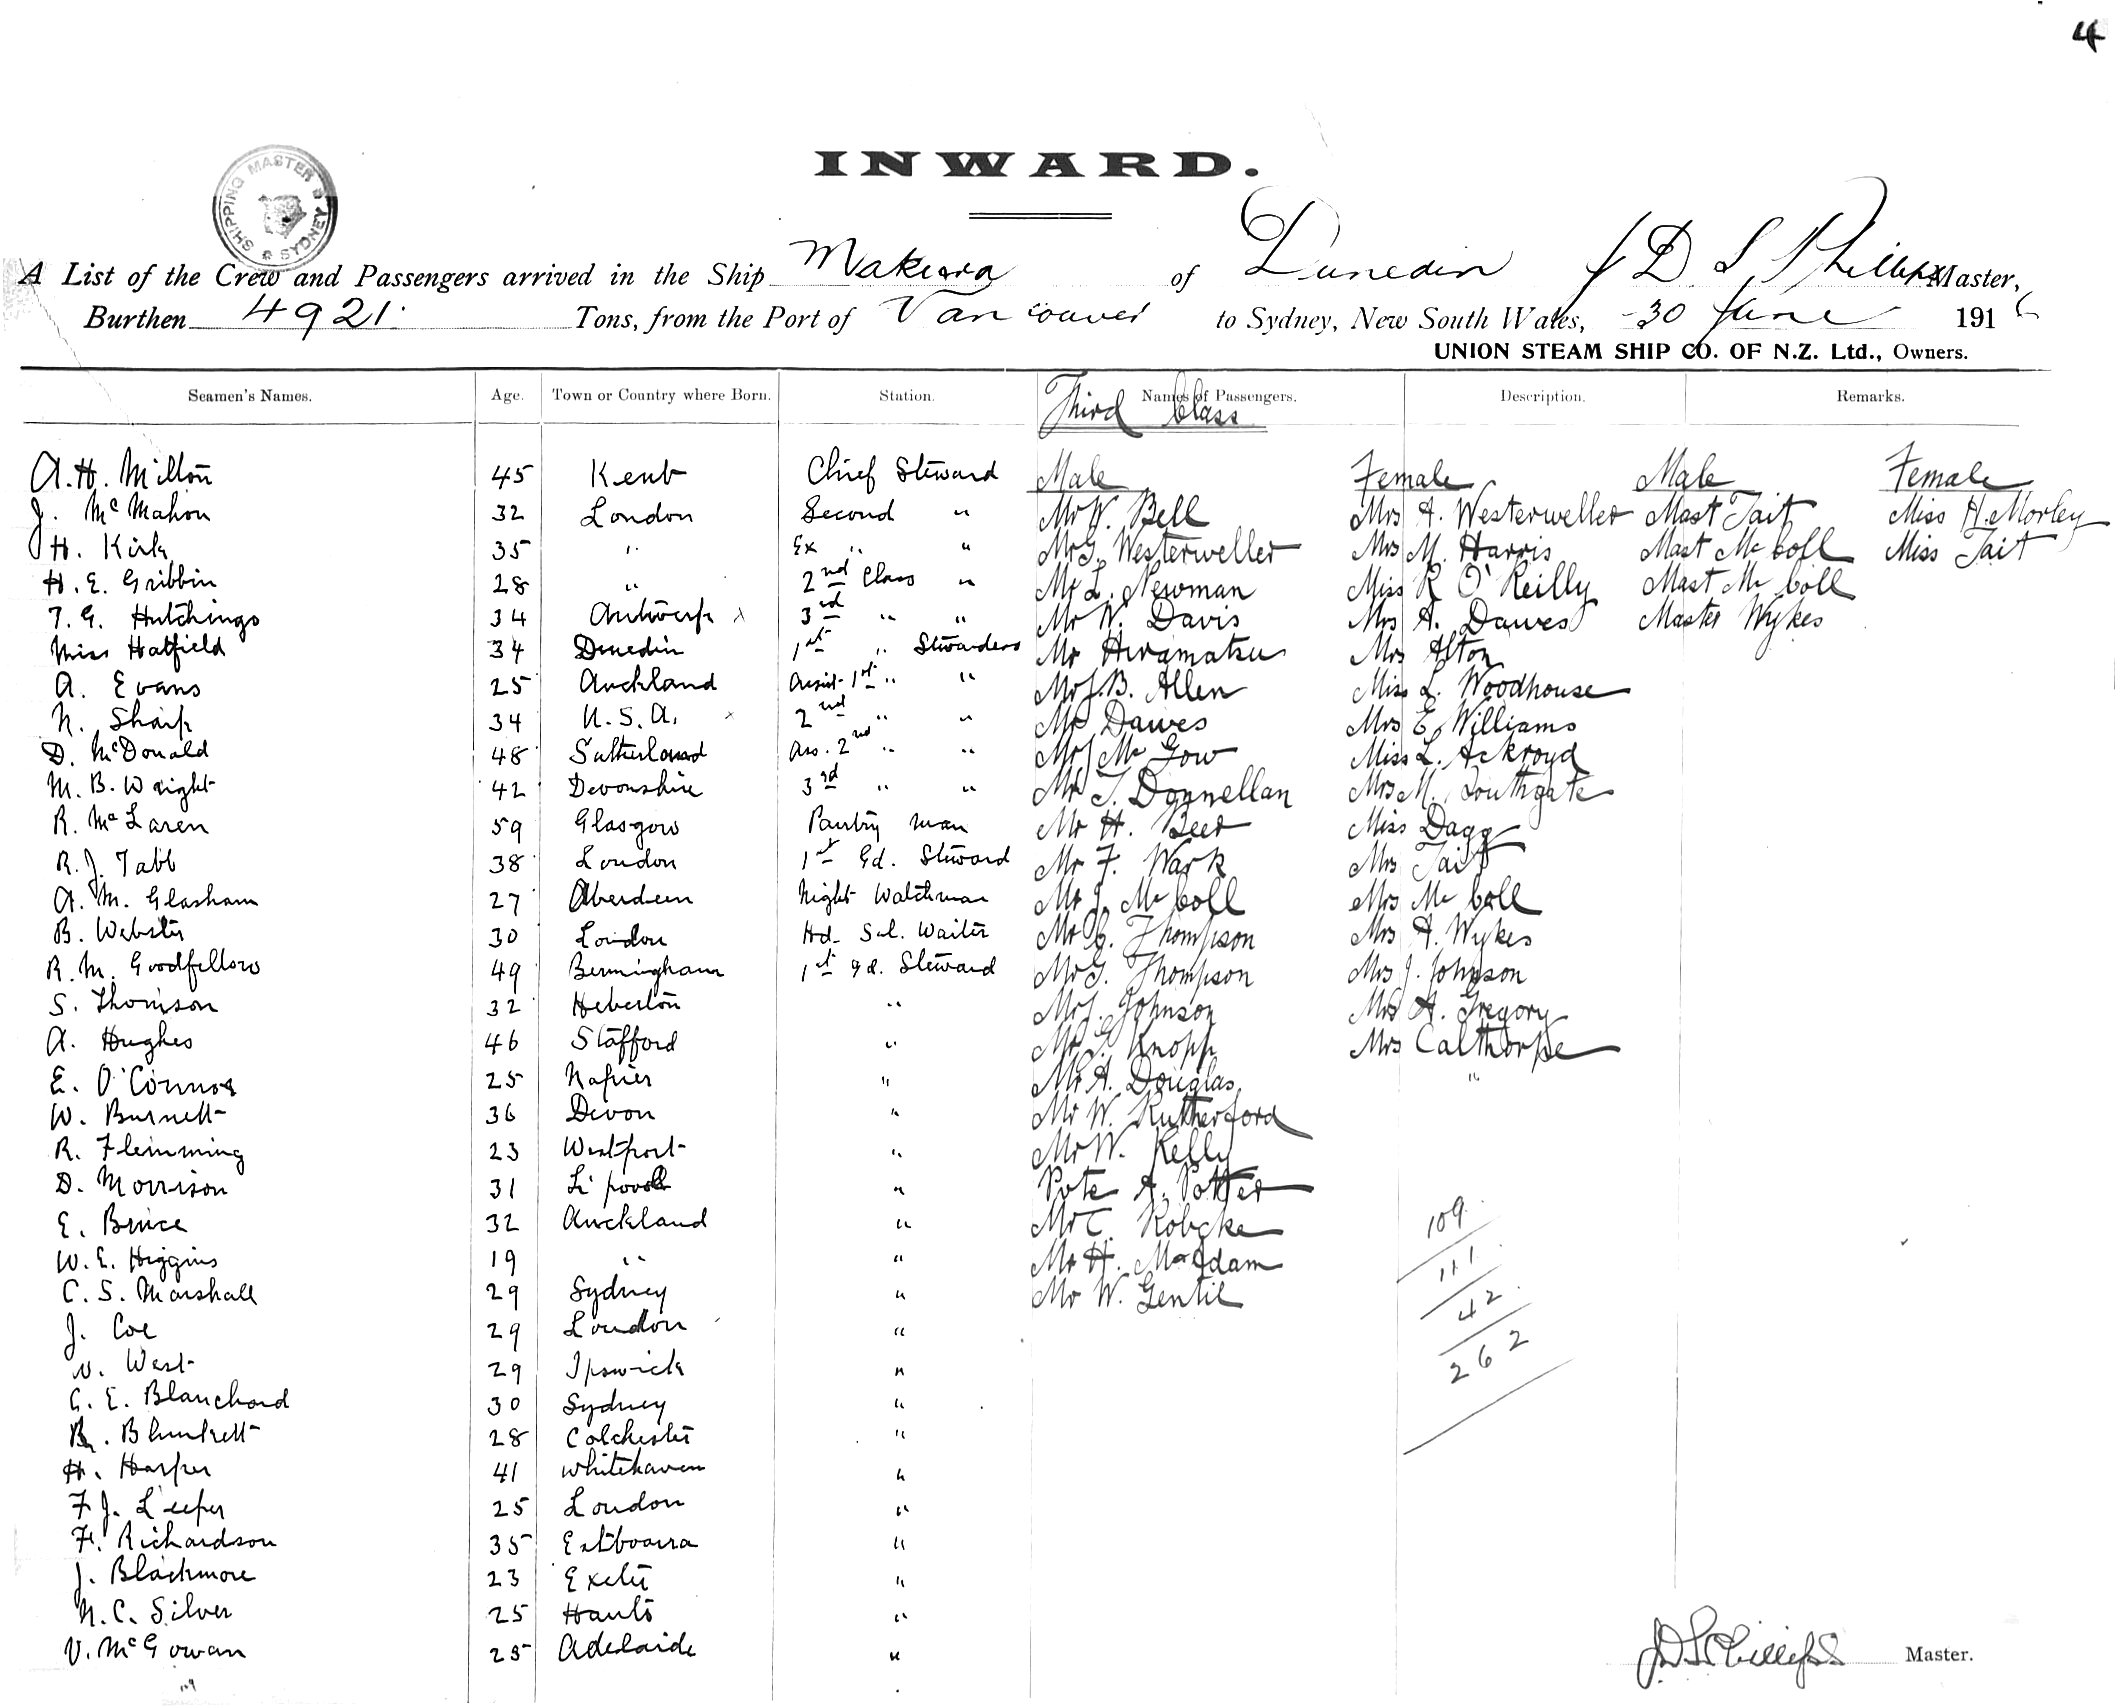 4
INWARD.
SHIPPING MASTER SYDNEY
A List of the Crew and Passengers arrived in the Ship Makura of Dunedin J D S Phillips Master,
Burthen 4921. Tons, from the Port of Vancouver to Sydney, New South Wales, 30 June 1916
UNION STEAM SHIP CO. OF N.Z. Ltd., Owners.
Seamen's Names. Age. Town or Country where Born. Station. Names of Passengers. Description. Remarks.
Third Class
A. H. Milton 45 Kent Chief Steward Male Female Male Female
J. McMahon 32 London Second " Mr W. Bell Mrs A. Westerweller Mast Tait Miss H. Morley
H. Kirk 35 " Ex " " Mr G. Westerweller Mrs M. Harris Mast Mc Coll Miss Tait
H. E. Gribbin 28 " 2nd Class " Mr L. Newman Miss R O'Reilly Mast Mc Coll
T. G. Hutchings 34 Antwerp x 3rd " " Mr W. Davis Mrs A. Dawes Master Wykes
Miss Hatfield 34 Dunedin 1st " Stewardess Mr Hiramatsu Mrs Alton
A. Evans 25 Auckland Assist 1st " " Mr J. B. Allen Miss L. Woodhouse
N. Sharp 34 U.S.A. x 2nd " " Mr Dawes Mrs E. Williams
D. McDonald 48 Sutherland Ass. 2nd " " Mr J Mc Gow Miss L. Ackroyd
M. B. Wright 42 Devonshire 3rd " " Mr T. Donnellan Mrs M. Southgate
R. McLaren 59 Glasgow Pantry man Mr H. Beer Miss Dagg
R. J. Tabb 38 London 1st Gd. Steward Mr F. Wark Mrs Tait
A. M. Glasham 27 Aberdeen Night Watchman Mr J. Mc Coll Mrs Mc Coll
B. Webster 30 London Hd. Sal. Waiter Mr C. Thompson Mrs A. Wykes
R. M. Goodfellow 49 Bermingham 1st gd. Steward Mr G. Thompson Mrs J. Johnson
S. Thomson 32 Heberton " Mr J. Johnson Mrs A. Gregory
A. Hughes 46 Stafford " Mr G. Knopp Mrs Calthorpe
E. O'Connor 25 Napier " Mr A. Douglas "
W. Burnett 36 Devon " Mr W. Rutherford
R. Flemming 23 Westport " Mr W. Kelly
D. Morrison 31 Li'pool " Pvte A. Potter
E. Bruce 32 Auckland " Mr C. Robcke 109
W. E. Higgins 19 " " Mr H. McAdam 111
C. S. Marshall 29 Sydney " Mr W. Gentil 42
J. Coe 29 London "
W. West 29 Ipswick " 262
C. E. Blanchard 30 Sydney "
R. Blunkett 28 Colchester "
H. Harper 41 Whitehaven "
F. J. Leeper 25 London "
F. Richardson 35 "
J. Blackmore 23 Exeter "
N. C. Silver 25 Hants "
V. McGowan 25 Adelaide "
109
J D S Phillips Master.